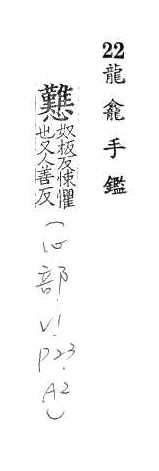 22龍龕手鑑
戁奴板反悚懼
也又人善反
(心部.V1.P23.A2)